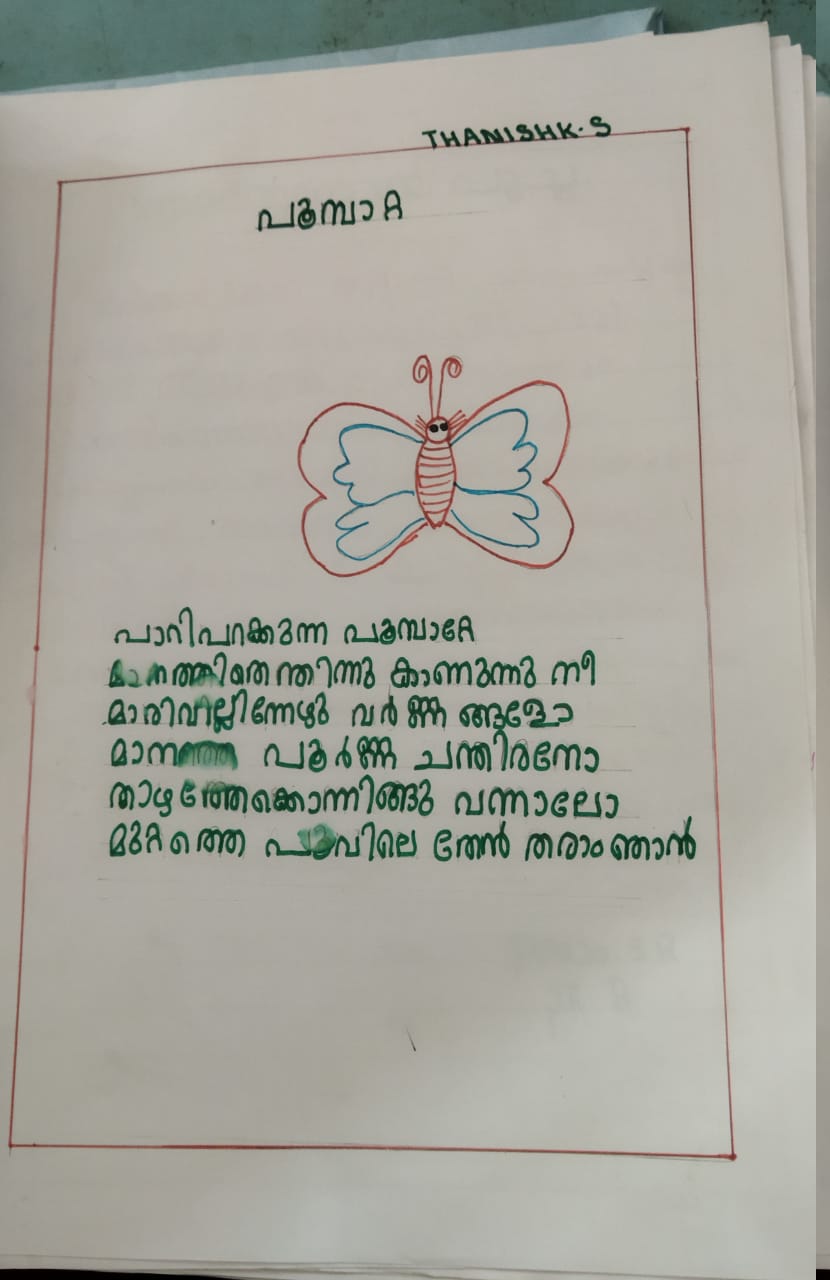 THANISHK.S
പൂമ്പാറ്റ
പാറിപറക്കുന്ന പൂമ്പാറ്റേ
മാനത്തിതെന്തിന്നു കാണുന്നു നീ
മാരിവില്ലിന്നേഴു വർണ്ണങ്ങളോ
മാനത്തെ പൂർണ്ണ ചന്തിരനോ
താഴത്തേക്കൊന്നിങ്ങു വന്നാലോ
മുറ്റത്തെ പൂവിലെ തേൻ തരാം ഞാൻ